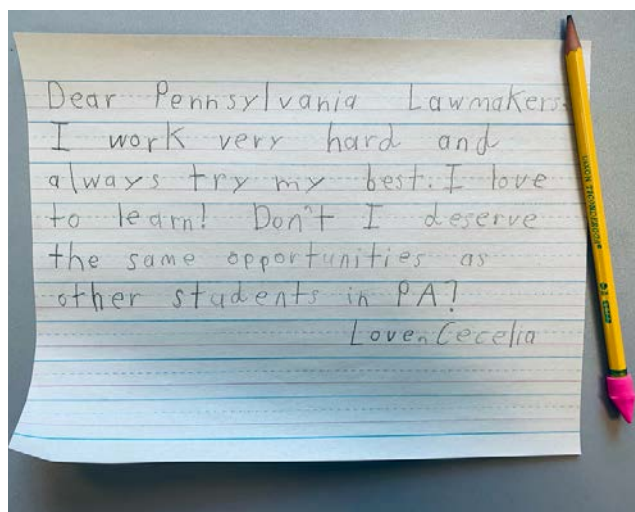 Dear Pennsylvania Lawmakers,
I work very hard and
always try my best. I love
to learn! Don't I deserve
the same opportunities as
other students in PA?
Love, Cecelia